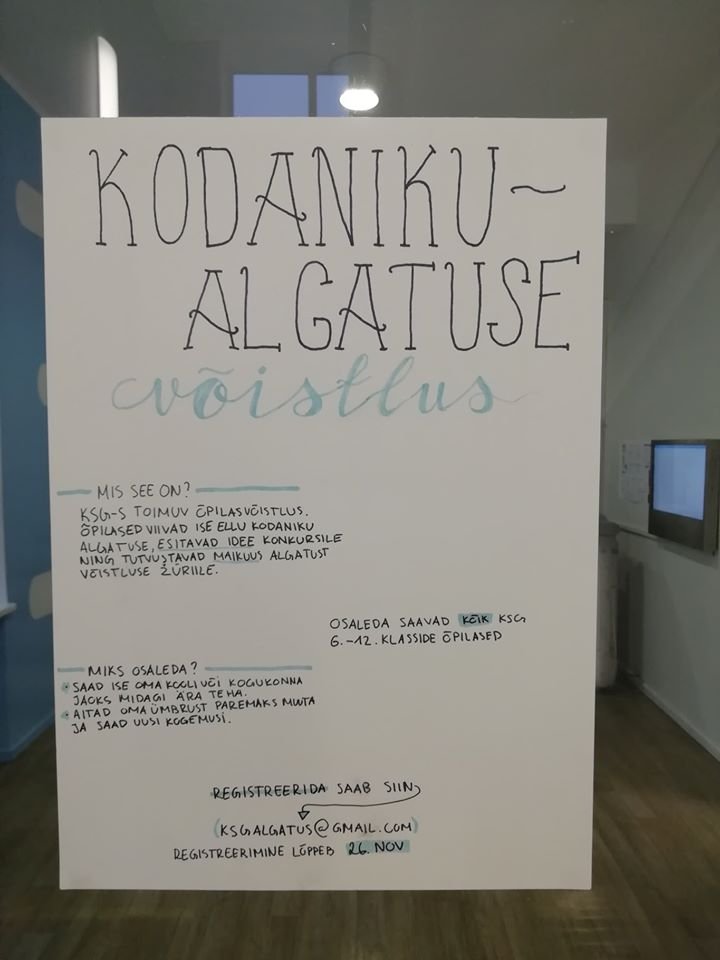 KODANIKU-
ALGATUSE
võistlus
MIS SEE ON?
KSG-S TOIMUV ÕPILASVÕISTLUS.
ÕPILASED VIIVAD ISE ELLU KODANIKU
ALGATUSE, ESITAVAD IDEE KONKURSILE
NING TUTVUSTAVAD MAIKUUS ALGATUST
VÕISTLUSE ŽÜRIILE.
OSALEDA SAAVAD KÕIK KSG
6.-12. KLASSIDE ÕPILASED
MIKS OSALEDA?
• SAAD ISE OMA KOOLI VÕI KOGUKONNA
JAOKS MIDAGI ÄRA TEHA.
• AITAD OMA ÜMBRUST PAREMAKS MUUTA
JA SAAD UUSI KOGEMUSI.
REGISTREERIDA SAAB SIIN
(KSGALGATUS@GMAIL.COM)
REGISTREERIMINE LÕPPEB 26. NOV